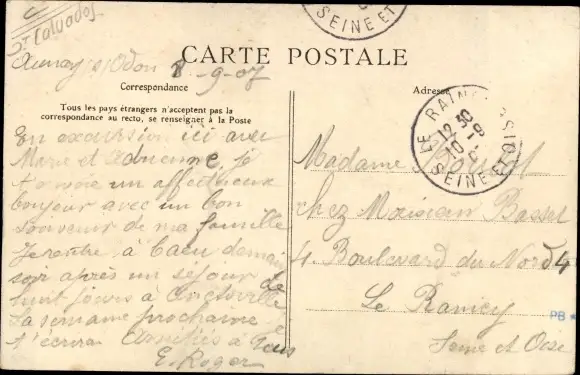 Calvados
Aunay s/Odon 8-9-07
CARTE POSTALE
Correspondance
Adresse
Tous les pays étrangers n'acceptent pas la
correspondance au recto, se renseigner à la Poste
SEINE ET
LE RAINCY
12 30
10 - 9
SEINE ET OISE
En excursion ici avec
Marie et Adrienne je
t'envoie un affectueux
bonjour avec un bon
souvenir de ma famille
Je rentre à Caen demain
soir après un séjour de
huit jours à
la semaine prochaine je
t'écrirai Amitiés à tous
E. Roger
Madame
chez Monsieur Basset
4. Boulevard du Nord 4
Le Raincy
Seine et Oise
PB